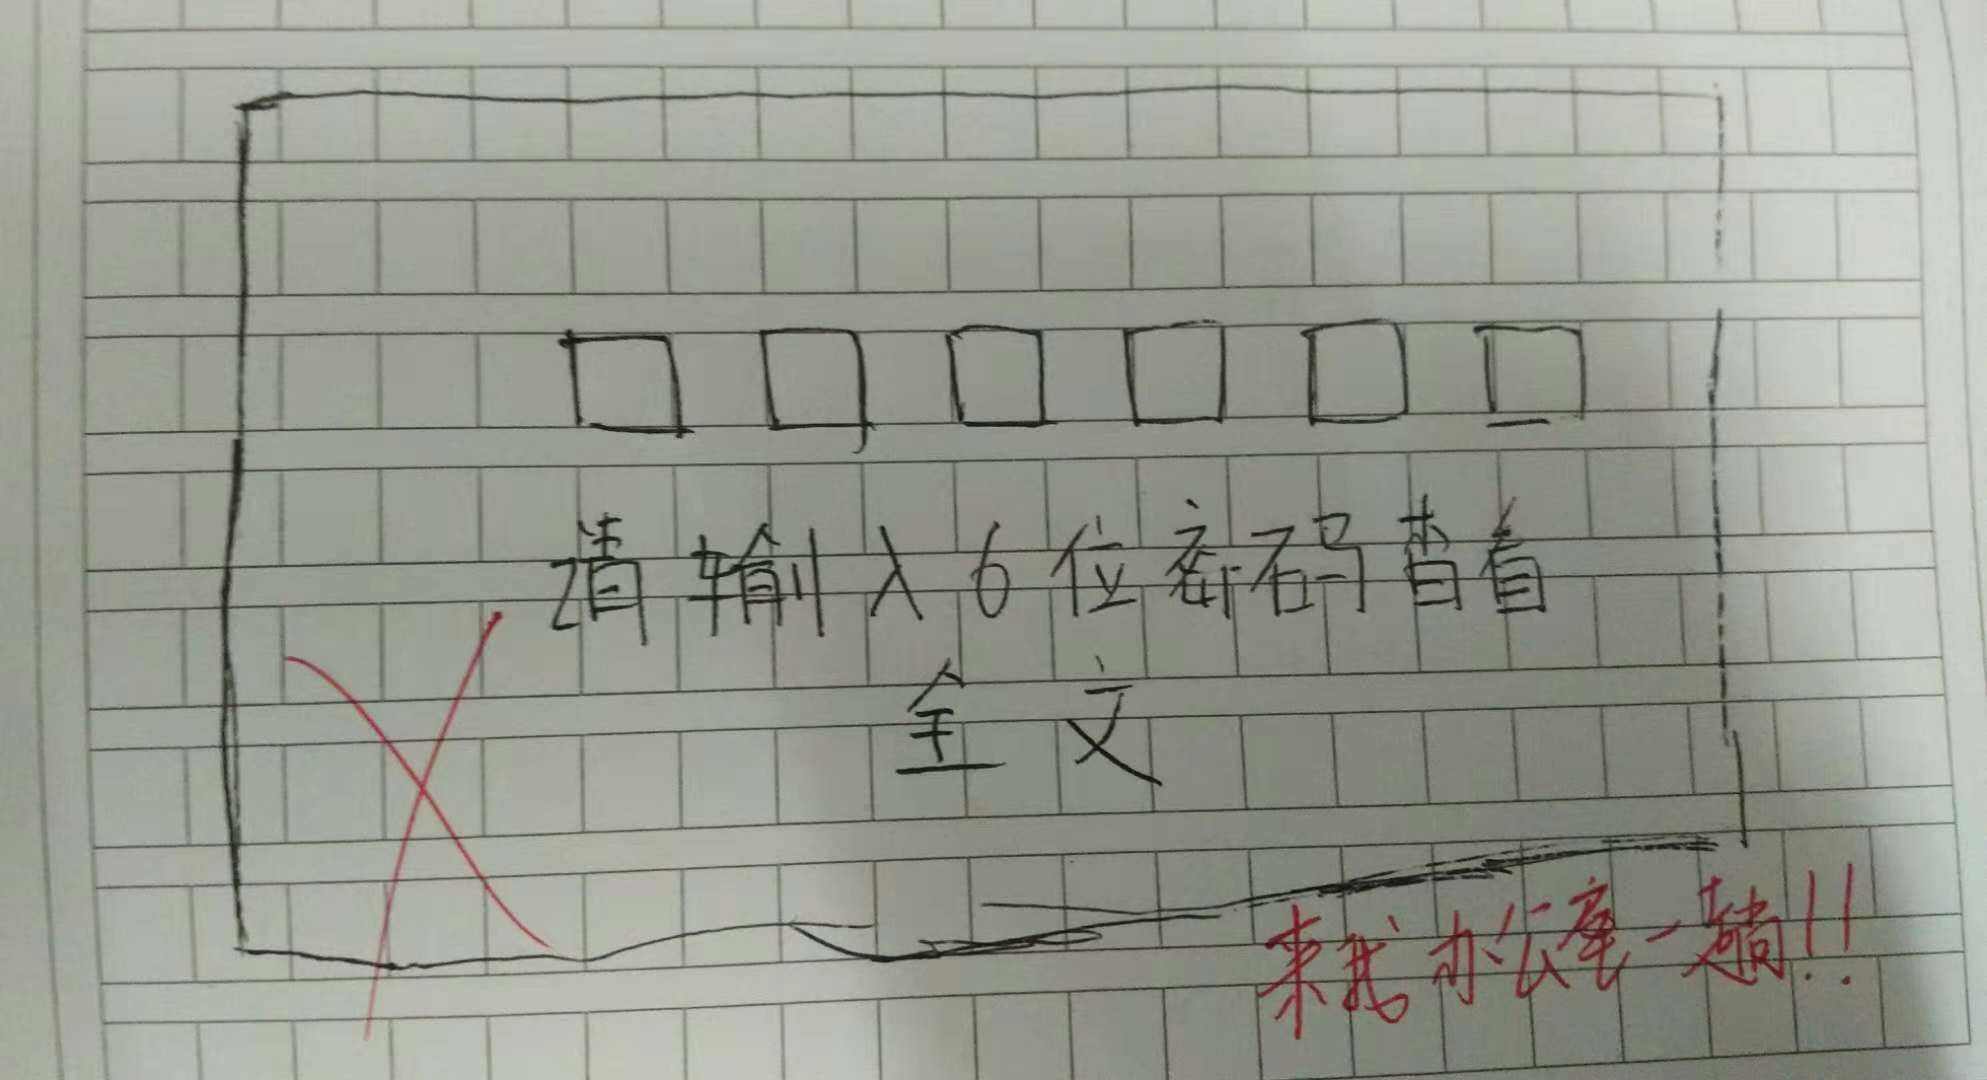 □ □ □ □ □ □
请输入6位密码查看
全文
来我办公室一趟!!